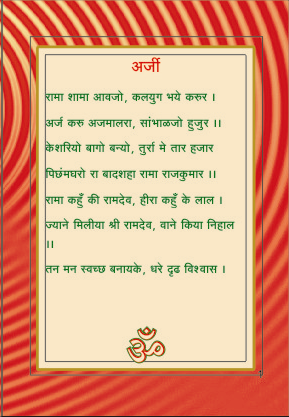 अर्जी
रामा शामा आवजो, कलयुग भये करुर ।
अर्ज करु अजमालरा, सांभाळजो हुजुर ।।
केशरियो बागो बन्यो, तुर्रा मे तार हजार
पिछंमघरो रा बादशहा रामा राजकुमार ।।
रामा कहुँ की रामदेव, हीरा कहुँ के लाल ।
ज्याने मिलीया श्री रामदेव, वाने किया निहाल
।।
तन मन स्वच्छ बनायके, धरे दृढ विश्वास ।
ॐ